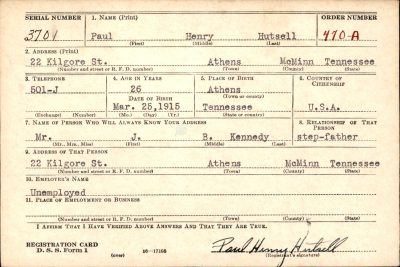 SERIAL NUMBER 1. NAME (Print) ORDER NUMBER
3701 Paul Henry Hutsell 410-A
(First) (Middle) (Last)
2. ADDRESS (Print)
22 Kilgore St. Athens McMinn Tennessee
(Number and street or R. F. D. number) (Town) (County) (State)
3. TELEPHONE 4. AGE IN YEARS 5. PLACE OF BIRTH 6. COUNTRY OF CITIZENSHIP
501-J 26 Athens
DATE OF BIRTH (Town or county)
Mar. 25,1915 Tennessee U.S.A.
(Exchange) (Number) (Mo.) (Day) (Yr.) (State or country)
7. NAME OF PERSON WHO WILL ALWAYS KNOW YOUR ADDRESS 8. RELATIONSHIP OF THAT PERSON
Mr. J. B. Kennedy step-father
(Mr., Mrs., Miss) (First) (Middle) (Last)
9. ADDRESS OF THAT PERSON
22 Kilgore St. Athens McMinn Tennessee
(Number and street or R. F. D. number) (Town) (County) (State)
10. EMPLOYER'S NAME
Unemployed
11. PLACE OF EMPLOYMENT OR BUSINESS
(Number and street or R. F. D. number) (Town) (County) (State)
I AFFIRM THAT I HAVE VERIFIED ABOVE ANSWERS AND THAT THEY ARE TRUE.
REGISTRATION CARD
D. S. S. Form 1 (over) Paul Henry Hutsell
(Registrant's signature)